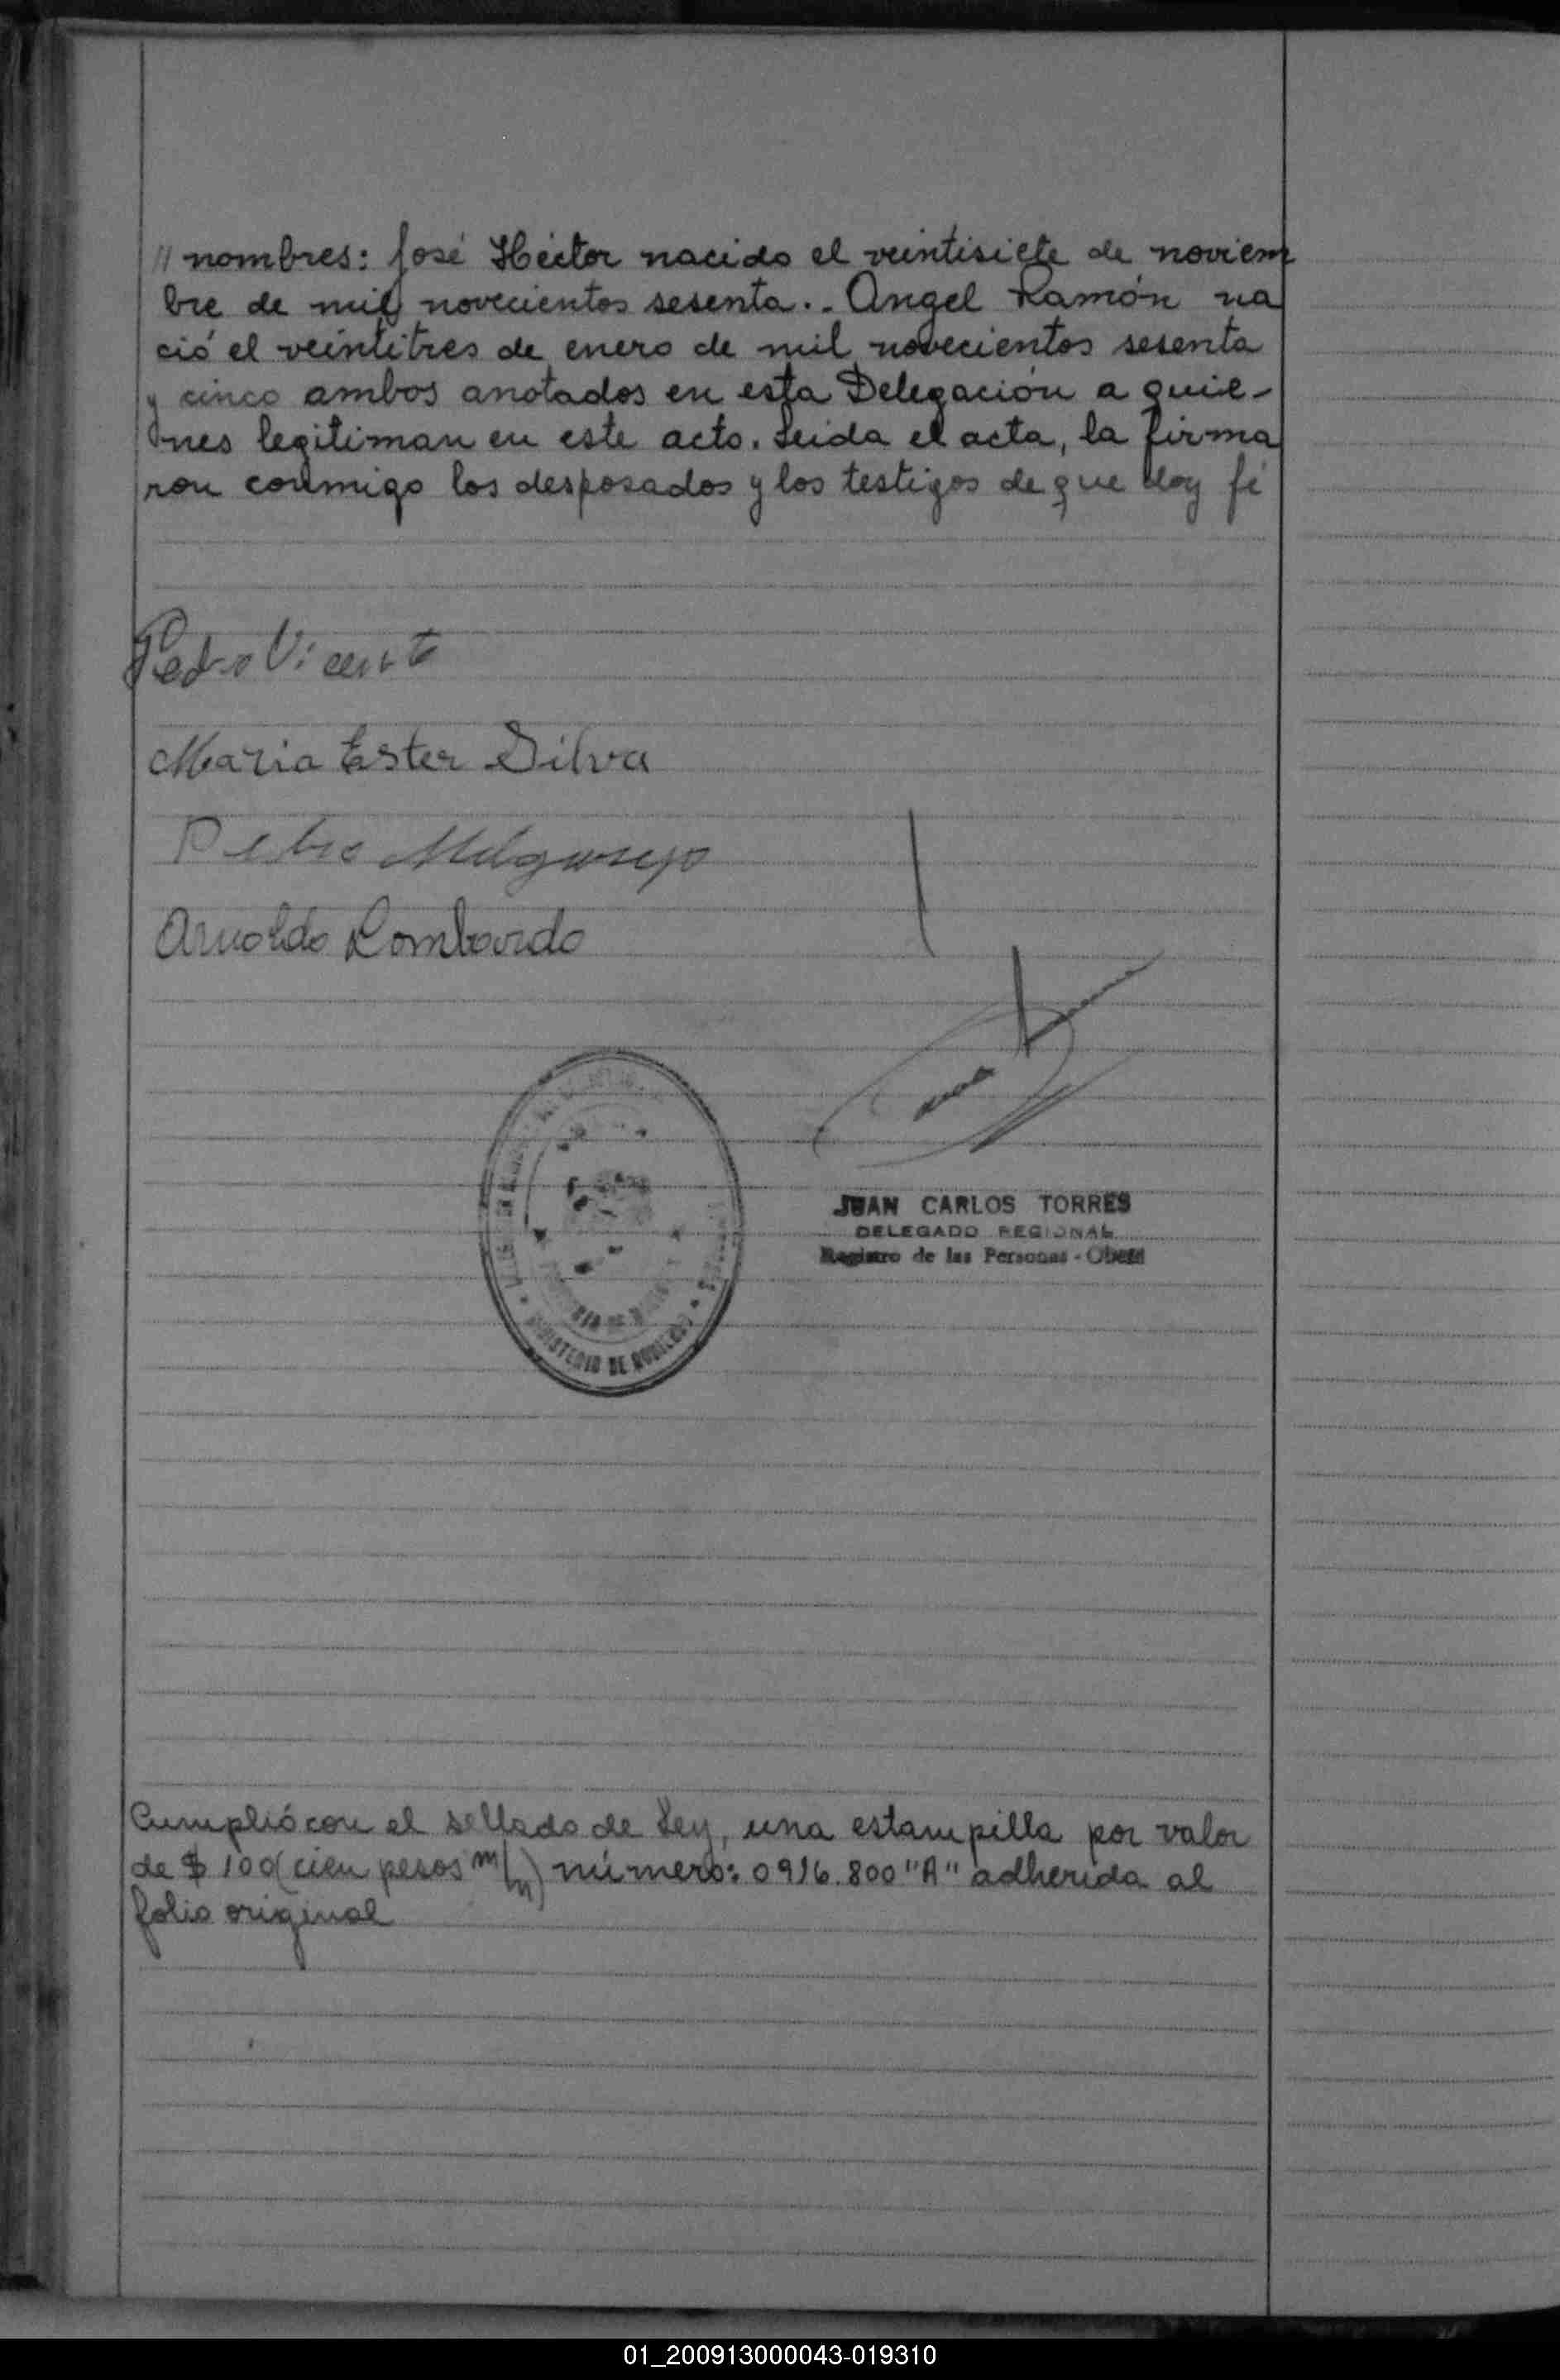 // nombres: José Héctor nacido el veintisiete de noviem
bre de mil novecientos sesenta.- Angel Ramón na
ció el veintitres de enero de mil novecientos sesenta
y cinco ambos anotados en esta Delegación a quie-
nes legitiman en este acto. Leida el acta, la firma
ron conmigo los desposados y los testigos de que doy fé
Pedro Vicente
Maria Ester Silva
Pedro Melgarejo
Arnoldo Lombardo
JUAN CARLOS TORRES
DELEGADO REGIONAL
Registro de las Personas - Oberá
MINISTERIO DE GOBIERNO
Cumplió con el sellado de Ley, una estampilla por valor
de $ 100 (cien pesos m/n) número: 0916.800 "A" adherida al
folio original
01_200913000043-019310